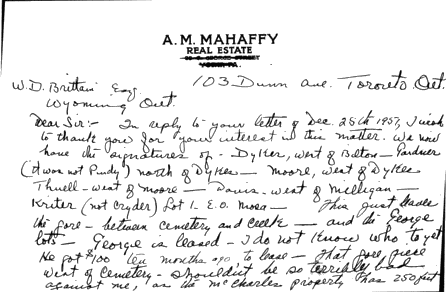 A. M. MAHAFFY
REAL ESTATE
GEORGE STREET
103 Dunn Ave. Toronto Ont.
W. D. Brittain Esq.
Wyoming Ont.
Dear Sir:- In reply to your letter of Dec. 28th 1957, I wish
to thank you for your interest in this matter. We now
have the signatures of - Dyker, west of Bolton - Gardner
(it won not Purdy) north of Dykes - Moore, west of Dykes
Thuell - west of Moore - Davis - west of Milligan -
Kriter (not Cryder) Lot 1. E.O. Moea - This just leaves
the gore - between cemetery and creek - and the George
lots - George is leased - I do not know who to yet
He got $100 ten months ago, to lease - that gore piece
west of cemetery - shouldn't be so terribly bad
against me, as the McCharles property has 250 feet